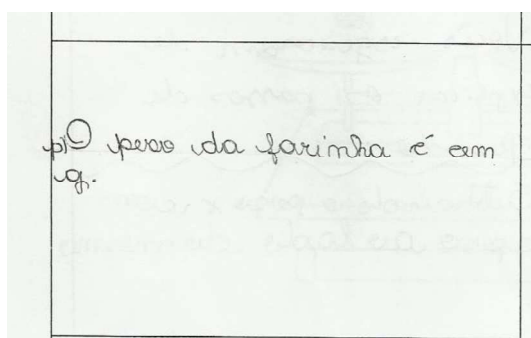 p) O peso da farinha é em
g.